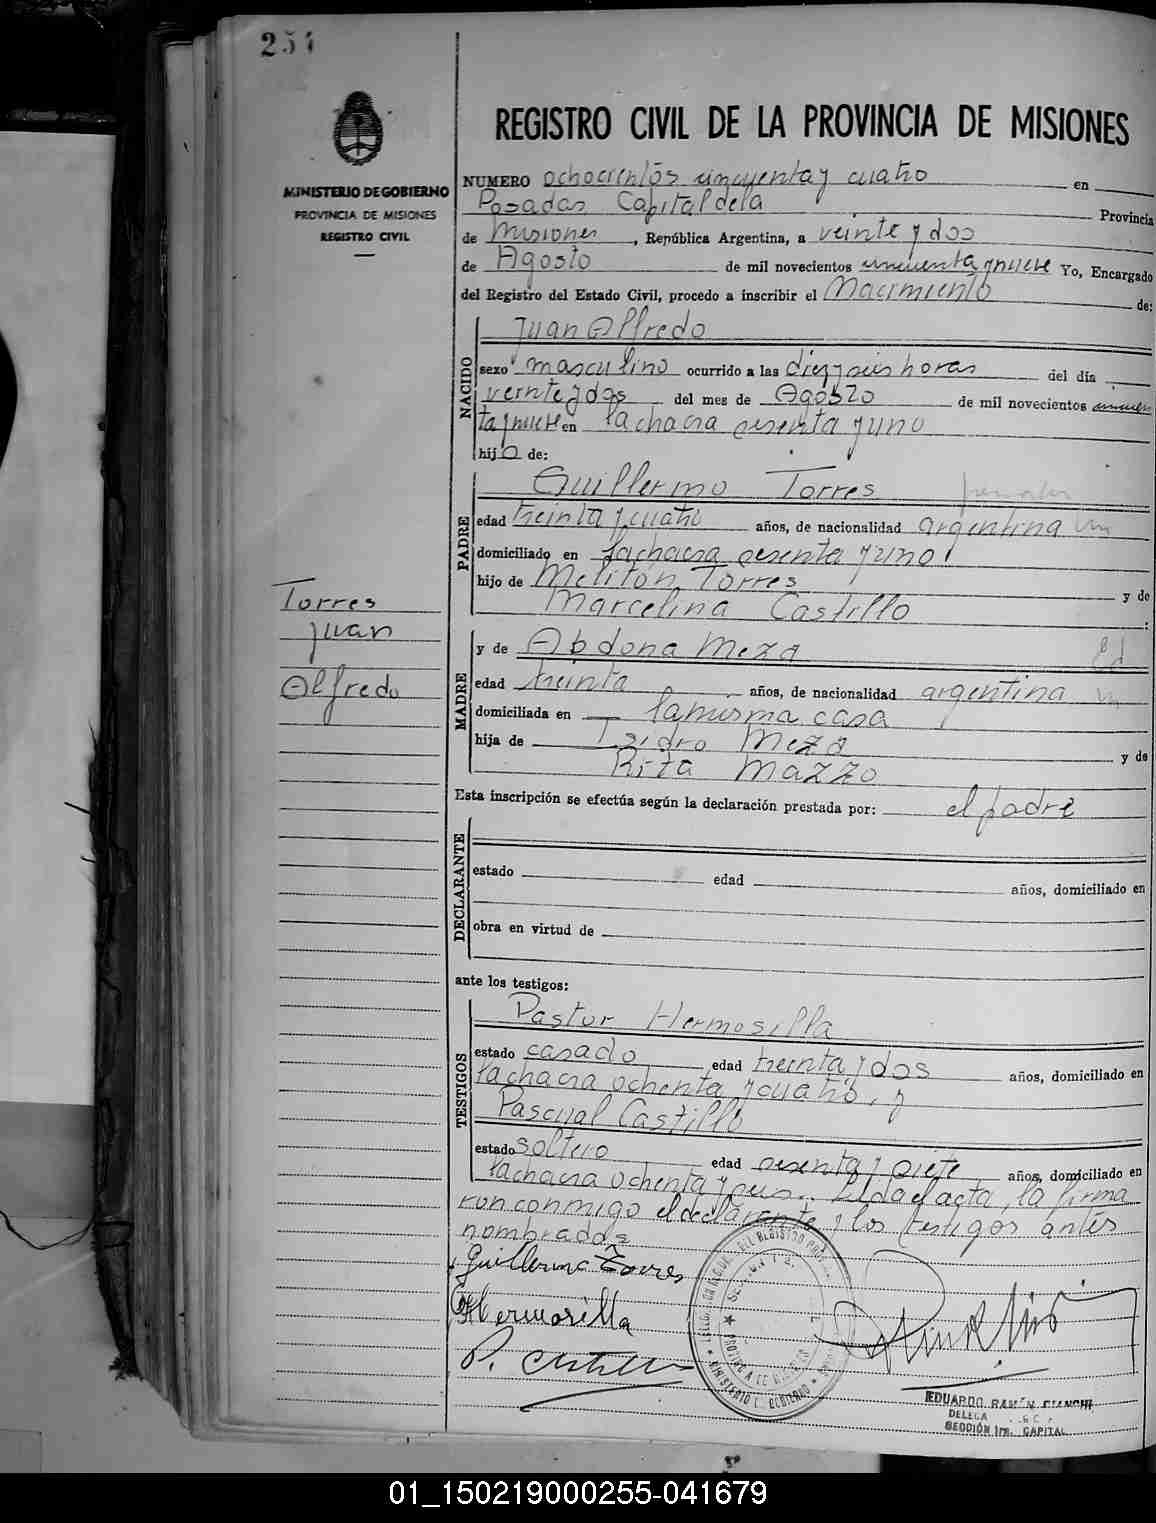 254
MINISTERIO DE GOBIERNO
PROVINCIA DE MISIONES
REGISTRO CIVIL
REGISTRO CIVIL DE LA PROVINCIA DE MISIONES
NUMERO ochocientos cincuenta y cuatro en
Posadas Capital de la Provincia
de Misiones, República Argentina, a veinte y dos
de Agosto de mil novecientos cincuenta y nueve Yo, Encargado
del Registro del Estado Civil, procedo a inscribir el Nacimiento de:
NACIDO
Juan Alfredo
sexo masculino ocurrido a las diez y seis horas del día
veinte y dos del mes de Agosto de mil novecientos cincuen
ta y nueve en la chacra sesenta y uno
hijo de:
PADRE
Guillermo Torres
edad treinta y cuatro años, de nacionalidad argentina
domiciliado en la chacra sesenta y uno
hijo de Melitón Torres y de
Marcelina Castillo :
Torres
Juan
Alfredo
MADRE
y de Abdona Meza
edad treinta años, de nacionalidad argentina
domiciliada en la misma casa
hija de Isidro Meza y de
Rita Mazzo
Esta inscripción se efectúa según la declaración prestada por: el padre
DECLARANTE
estado edad años, domiciliado en
obra en virtud de
ante los testigos:
TESTIGOS
Pastor Hermosilla
estado casado edad treinta y dos años, domiciliado en
la chacra ochenta y cuatro, y
Pascual Castillo
estado soltero edad sesenta y siete años, domiciliado en
la chacra ochenta y seis. Leida el acta, la firma
ron conmigo el declarante y los testigos antes
nombrados
Guillermo Torres
Hermosilla
P. Castillo
MINISTERIO DE GOBIERNO
EDUARDO RAMÓN BIANCHI
SECCIÓN 1ra. CAPITAL
01_150219000255-041679